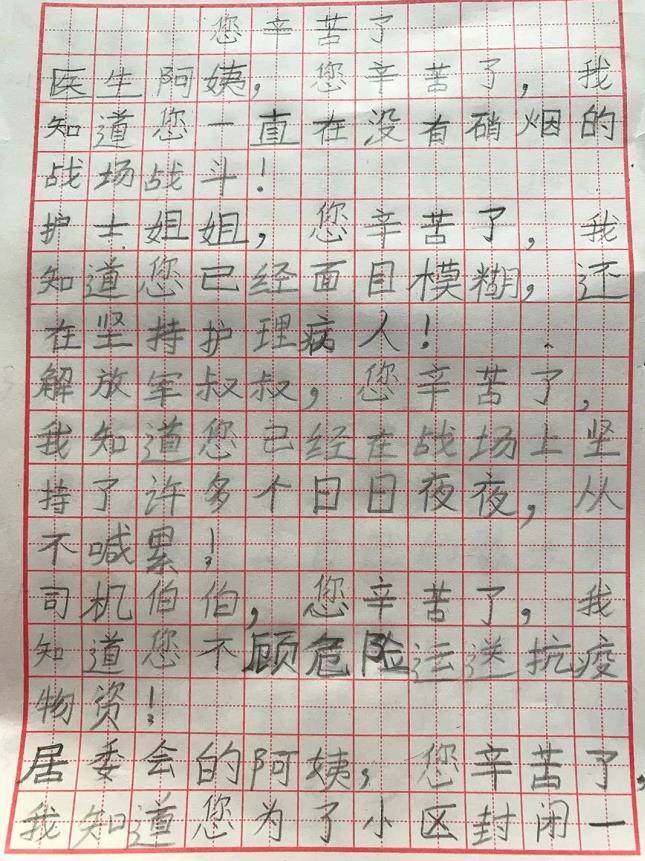 您辛苦了
医生阿姨，您辛苦了，我
知道您一直在没有硝烟的
战场战斗！
护士姐姐，您辛苦了，我
知道您已经面目模糊，还
在坚持护理病人！
解放军叔叔，您辛苦了，
我知道您已经在战场上坚
持了许多个日日夜夜，从
不喊累！
司机伯伯，您辛苦了，我
知道您不顾危险运送抗疫
物资！
居委会的阿姨，您辛苦了，
我知道您为了小区封闭一